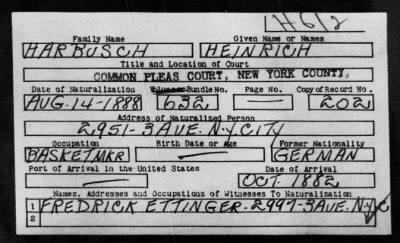 1H612
Family Name Given Name or Names
HARBUSCH HEINRICH
Title and Location of Court
COMMON PLEAS COURT, NEW YORK COUNTY,
Date of Naturalization Volume or Bundle No. Page No. Copy of Record No.
AUG.-14-1888 632 — 202
Address of Naturalized Person
2951-3AVE. N.Y. CITY
Occupation Birth Date or Age Former Nationality
BASKET MKR — GERMAN
Port of Arrival in the United States Date of Arrival
— OCT. 1882
Names, Addresses and Occupations of Witnesses To Naturalization
1 FREDRICK ETTINGER-2997-3AVE. N.Y.C
2